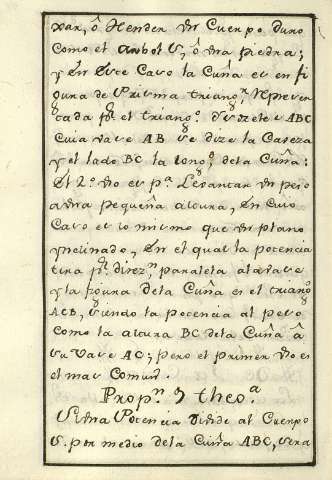 xar, ô Henden un Cuerpo duro
Como el Arbol S, ô una piedra;
y En Este Caso la Cuña es en fi
gura de Prisma triang.r Represen
tada p.r el triang.o Scalete ABC
Cuia vase AB se dize la Caveza
y el lado BC la long.d dela Cuña:
El 2.o uso es p.a Levantar un peso
a una pequeña altura, En Cuio
Caso es lo mismo que un plano
ynclinado, En el qual la potencia
tira p.r direz.n paralela ala vase
y la figura dela Cuña es el triang.o
ACB, siendo la potencia al peso
Como la altura BC dela Cuña â
su Vase AC; pero el primer uso es
el mas Comun.
Prop.n 9 theo.a
Si una Potencia tiende al Cuerpo
S. por medio dela Cuña ABC, sera